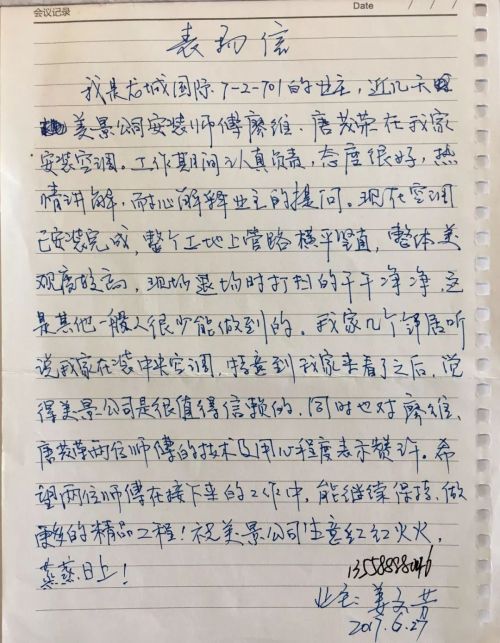 会议记录 Date / / /
表扬信
我是龙城国际7-2-701的业主,近几天
美景公司安装师傅詹维、唐茂荣在我家
安装空调。工作期间认真负责,态度很好,热
情讲解,耐心解释业主的提问。现在空调
已安装完成,整个工地上管路横平竖直,整体美
观度较高,现场退场时打扫的干干净净,这
是其他一般人很少能做到的。我家几个邻居听
说我家在装中央空调,特意到我家来看了之后,觉
得美景公司是很值得信赖的,同时也对詹维、
唐茂荣两位师傅的技术及用心程度表示赞许。希
望两位师傅在接下来的工作中,能继续保持,做
更好的精品工程!祝美景公司生意红红火火,
蒸蒸日上!
业主:姜冬芳
2017.6.27